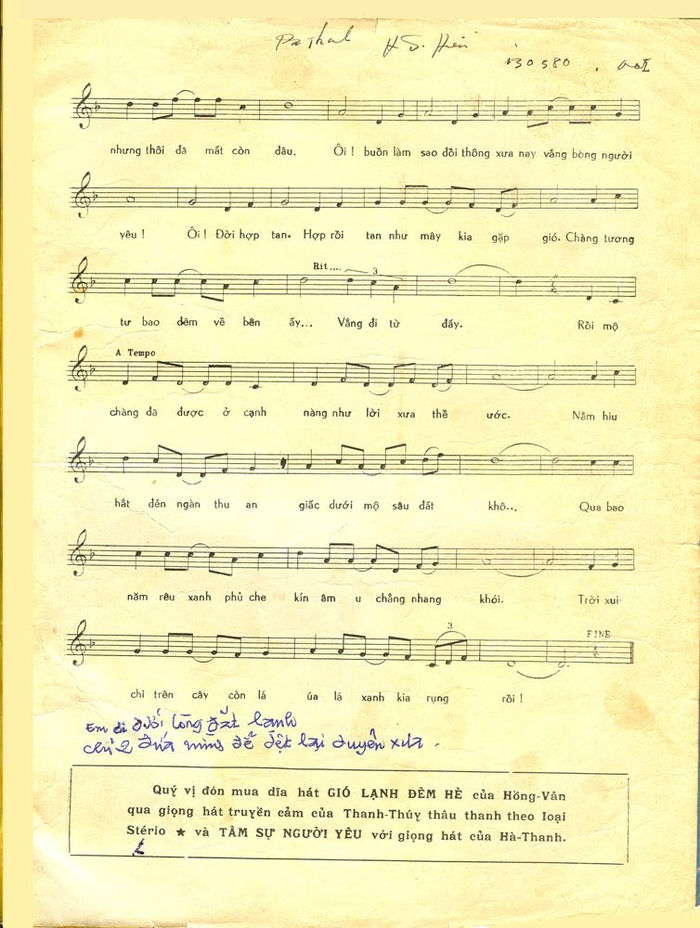 nhưng thôi đã mất còn đâu. Ôi ! buồn làm sao đồi thông xưa nay vắng bóng người
yêu ! Ôi ! Đời hợp tan. Hợp rồi tan như mây kia gặp gió. Chàng tương
Rit.... 3
tư bao đêm về bên ấy... Vẳng đi từ đấy. Rồi mộ
A Tempo
chàng đã được ở cạnh nàng như lời xưa thề ước. Nằm hiu
hắt đến ngàn thu an giấc dưới mộ sâu đất khô... Qua bao
năm rêu xanh phủ che kín âm u chẳng nhang khói. Trời xui
3 FINE
chi trên cây còn lá úa lá xanh kia rụng rồi !
Em đi dưới lòng đất lạnh
chỉ 2 đứa mình để dệt lại duyên xưa .
Quý vị đón mua dĩa hát GIÓ LẠNH ĐÊM HÈ của Hồng-Vân
qua giọng hát truyền cảm của Thanh-Thúy thâu thanh theo loại
Stério ★ và TÂM SỰ NGƯỜI YÊU với giọng hát của Hà-Thanh.